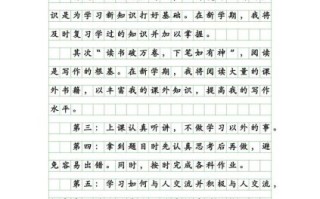 识是为学习新知识打好基础。在新学期，我将
及时复习学过的知识并加以掌握。
其次“读书破万卷，下笔如有神”，阅读
是写作的根基。在新学期，我将阅读大量的课
外书籍，以丰富我的课外知识，提高我的写作
水平。
第三：上课认真听讲，不做学习以外的事。
第四：拿到题目时先认真思考后再做，避
免容易出错。同时，按时完成各科作业。
第五：学习如何与人交流并积极与人交流，